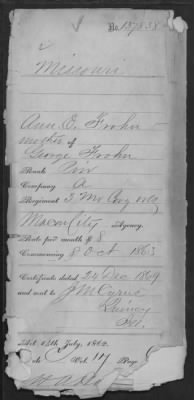 No. 137838
Missouri
Ann E. Frohn
mother of
George Frohn
Rank Priv
Company A
Regiment 3 Mo Cav Vols
Macon City Agency.
Rate per month $ 8
Commencing 8 Oct 1863
Certificate dated 24 Dec 1869
and sent to J McCune
Quincy
Ill.
Act 14th July, 1862.
Vol. 11 Page